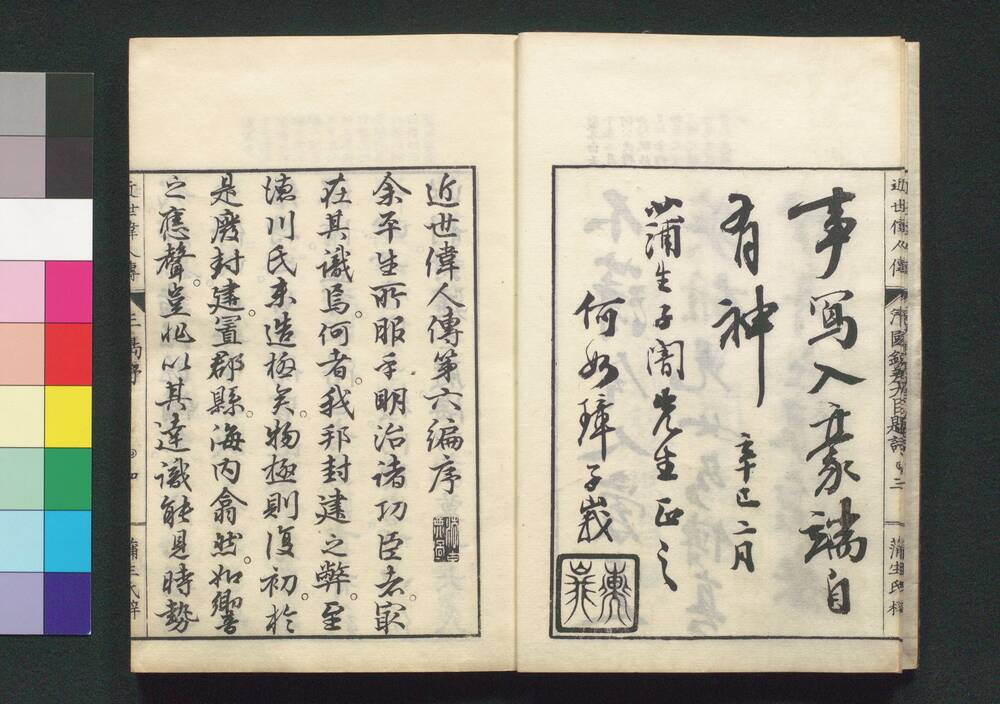 事寫入豪端自
有神
辛巳二月
蒲生子闇先生正之
何如璋子峩
近世偉人傳第六編序
余平生所服于明治諸功臣者冣
在其識焉。何者。我邦封建之弊。至
德川氏末造極矣。物極則復初。於
是廢封建置郡縣。海内翕然。如響
之應聲。豈非以其達識能見時勢
近世偉人傳
蒲生氏梓
近世偉人傳